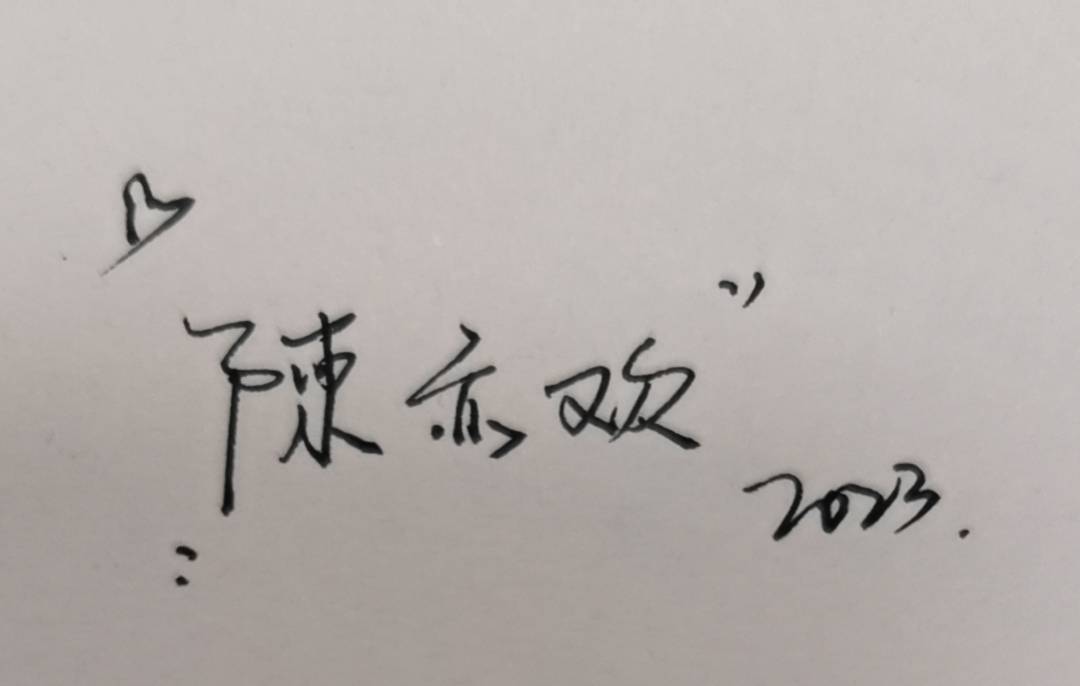 陳亦欢
2023.